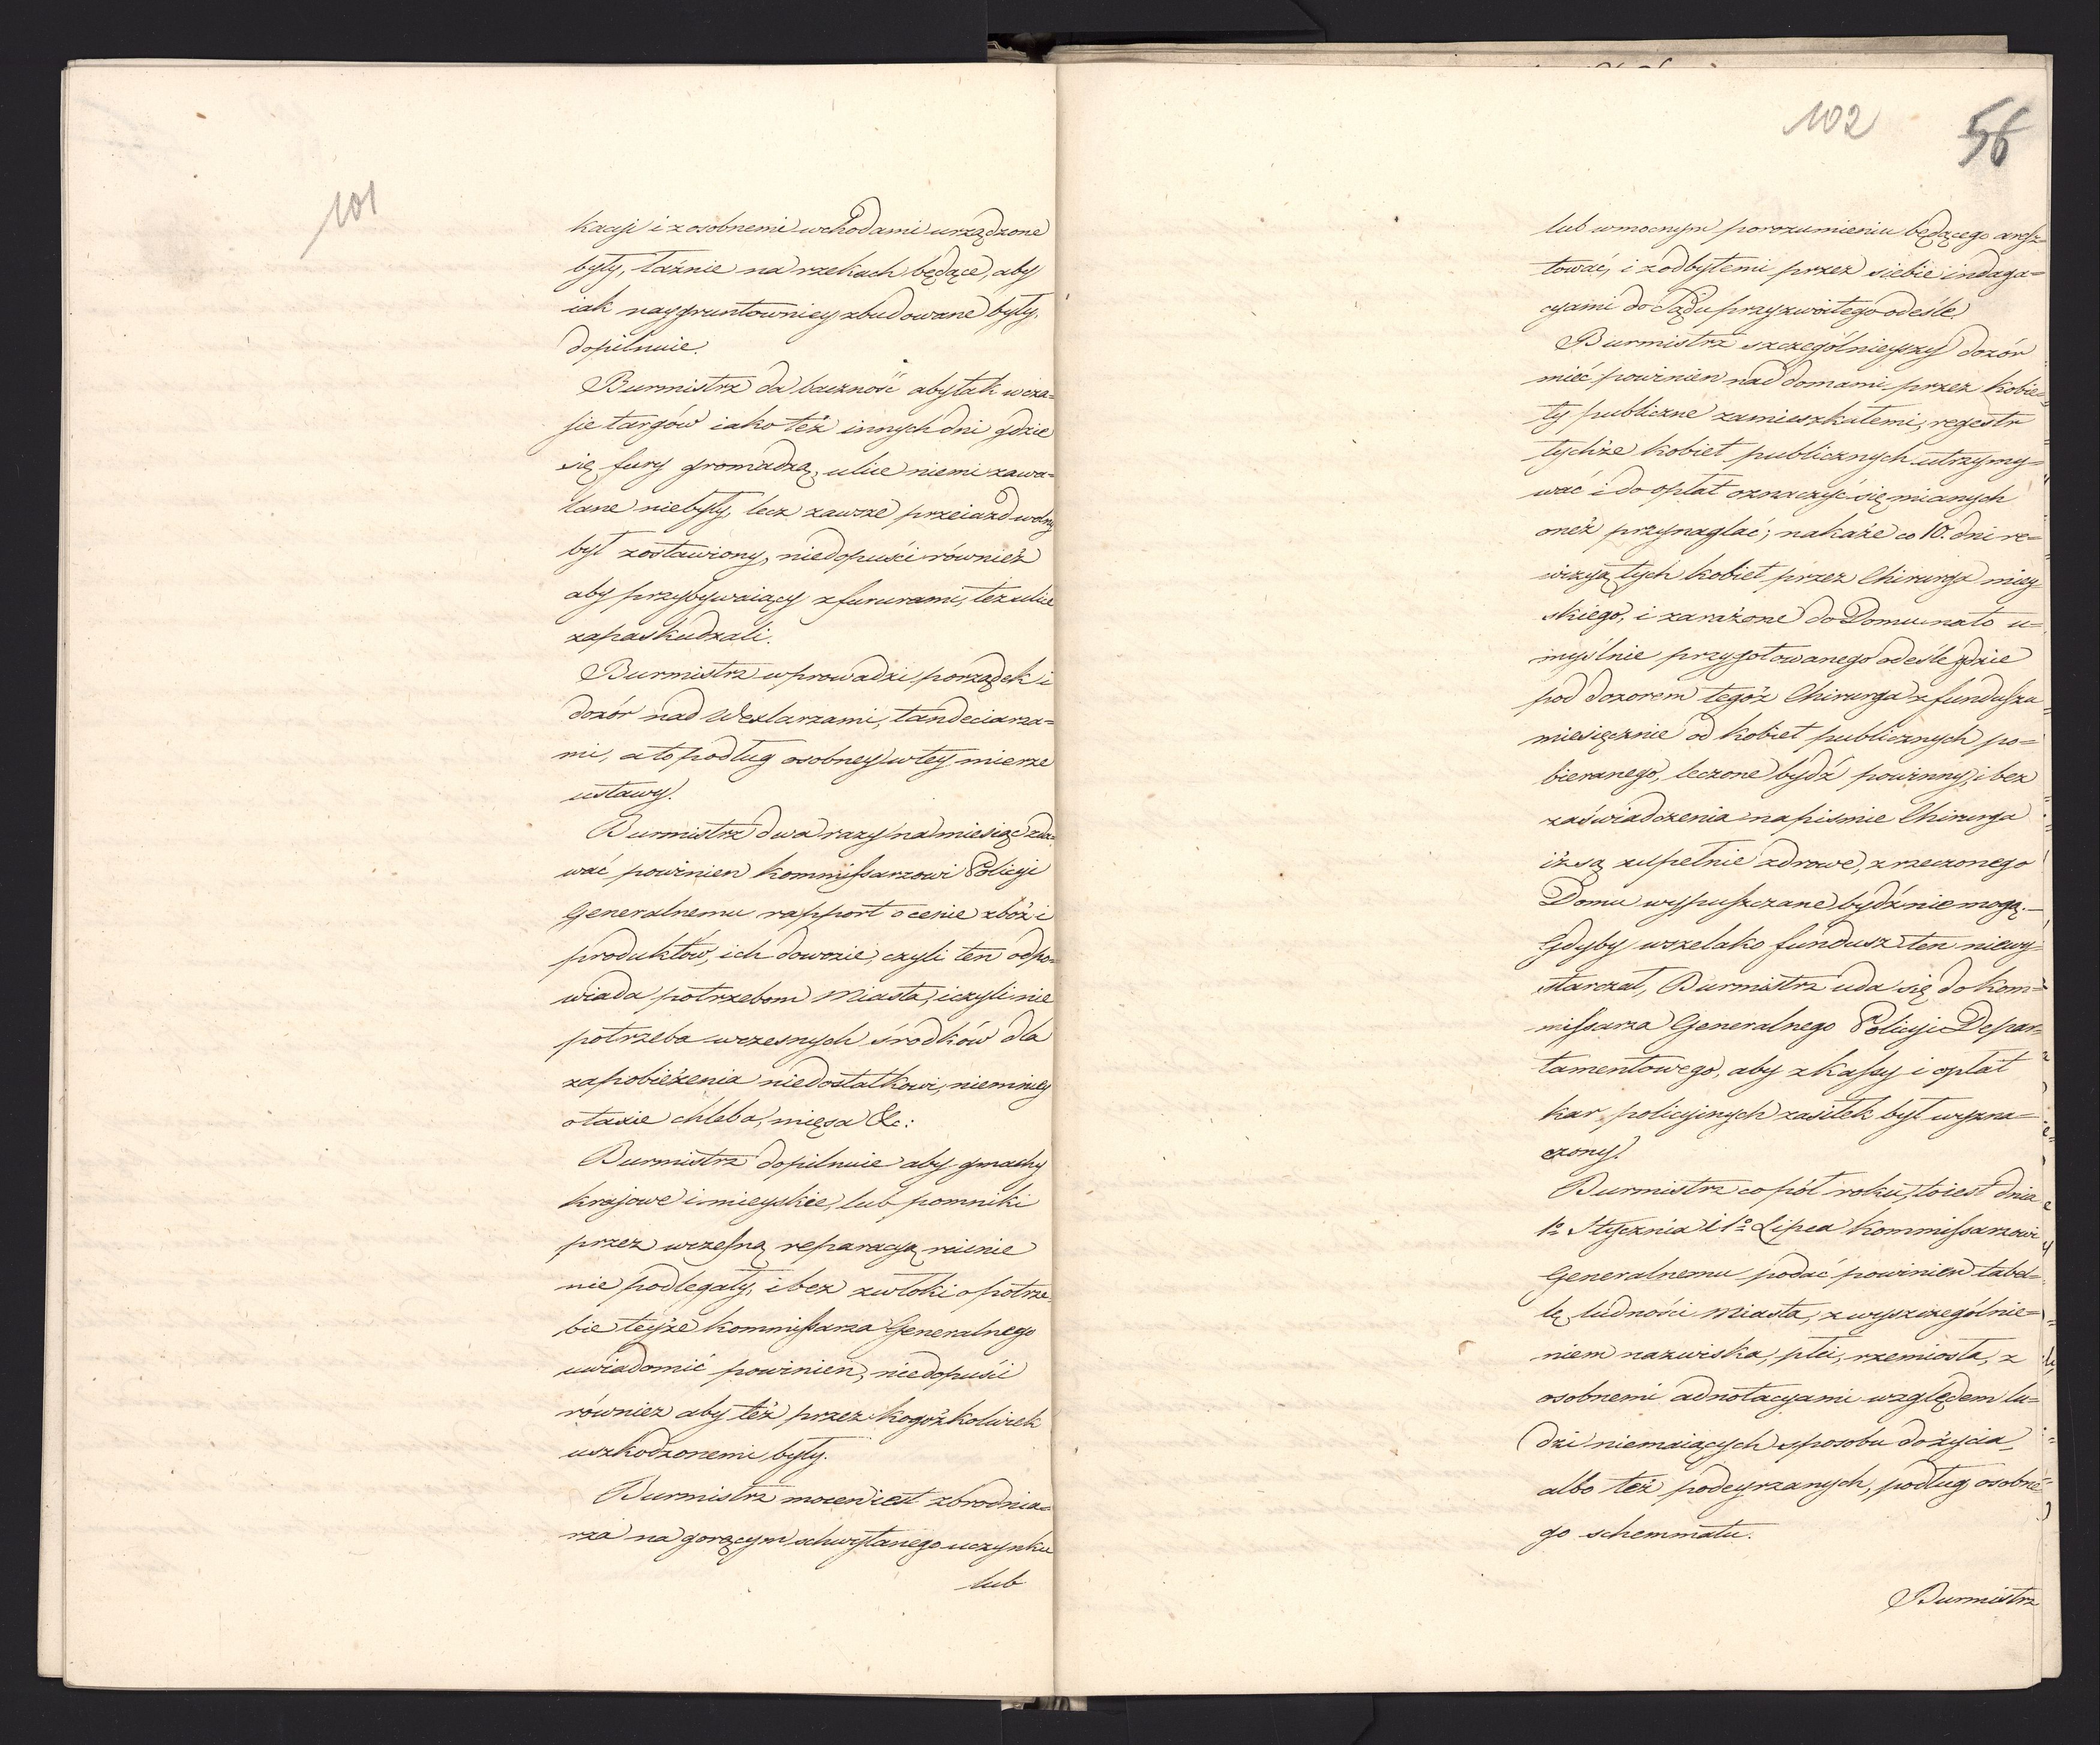 101
kacji i z osobnemi wchodami urządzone
były, łaźnie na rzekach będące, aby
iak naygruntowniey zbudowane były,
dopilnuie.
Burmistrz da baczność aby tak w cza=
sie targów iako też innych dni gdzie
się fury gromadzą, ulice niemi zawa=
lane niebyły, lecz zawsze przeiazd wolny
był zostawiony, niedopuści również
aby przybywaiący z fururami, też ulice
zapaskudzali.
Burmistrz wprowadzi porządek i
dozór nad Wexlarzami, tandeciarza=
mi, a to podług osobney w tey mierze
ustawy.
Burmistrz dwa razy na miesiąc zda=
wać powinien Kommissarzowi Policyi
Generalnemu rapport o cenie zbóż i
produktów, ich dowozie, czyli ten odpo=
wiada potrzebom Miasta, i czyli nie
potrzeba wczesnych środków dla
zapobieżenia niedostatkowi, niemniey
o taxie chleba, mięsa &c:
Burmistrz dopilnuie aby gmachy
krajowe i mieyskie, lub pomniki
przez wczesną reparacyą ruinie
nie podlegały, i bez zwłoki o potrze=
bie teyże Kommissarza Generalnego
uwiadomić powinien, niedopuści
również aby też przez kogożkolwiek
uszkodzonemi były.
Burmistrz mocen iest zbrodnia=
rza na gorącym schwytanego uczynku
lub
102
56
lub w mocnym porozumieniu będącego aresz=
tować, i z odbytemi przez siebie indaga=
cyami do Sądu przyzwoitego odeśle.
Burmistrz szczególnieyszy dozór
mieć powinien nad domami przez kobie=
ty publiczne zamieszkałemi, regestr
tychże kobiet publicznych utrzymy=
wać i do opłat oznaczyć się mianych
oneż przynaglać; nakaże co 10. dni re=
wizyą tych kobiet przez Chirurga miey=
skiego, i zarażone do Domu na to u=
myślnie przygotowanego odeśle gdzie
pod dozorem tegoż Chirurga z fundusza
miesięcznie od kobiet publicznych po=
bieranego, leczone bydź powinny, i bez
zaświadczenia na piśmie Chirurga
iż są zupełnie zdrowe, z rzeczonego
Domu wypuszczane bydź nie mogą.—
Gdyby wszelako fundusz ten niewy=
starczał, Burmistrz uda się do Kom=
missarza Generalnego Policyi Depar=
tamentowego, aby z kassy i opłat
kar policyinych zasiłek był wyzna=
czony.
Burmistrz co pół roku, to iest dnia
1o Stycznia i 1o Lipca Kommissarzowi
Generalnemu podać powinien tabel=
lę ludności Miasta, z wyszczególnie=
niem nazwiska, płci, rzemiosła, z
osobnemi adnotacyami względem lu=
dzi niemaiących sposobu do życia
albo też podeyrzanych, podług osobne=
go schemmatu.
Burmistrz